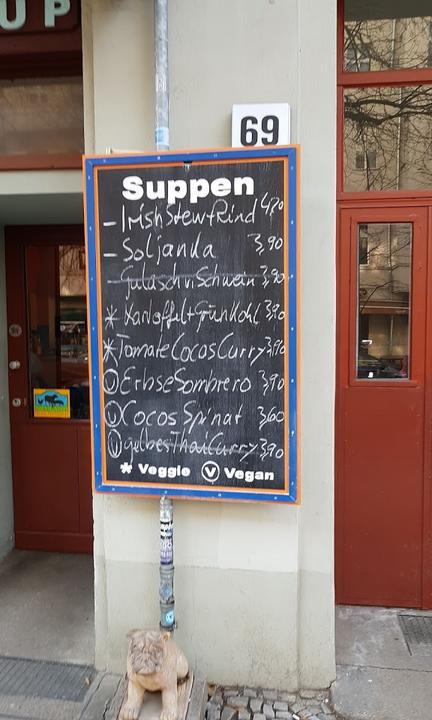 UP
69
Suppen
- Irish Stew+Rind 4,70
- Soljanka 3,90
- Gulasch v. Schwein 3,90
* Kartoffel+Grünkohl 3,90
* Tomate Cocos Curry 3,90
Ⓥ Erbse Sombrero 3,90
Ⓥ Cocos Spinat 3,60
Ⓥ gelbes Thai Curry 3,90
* Veggie Ⓥ Vegan